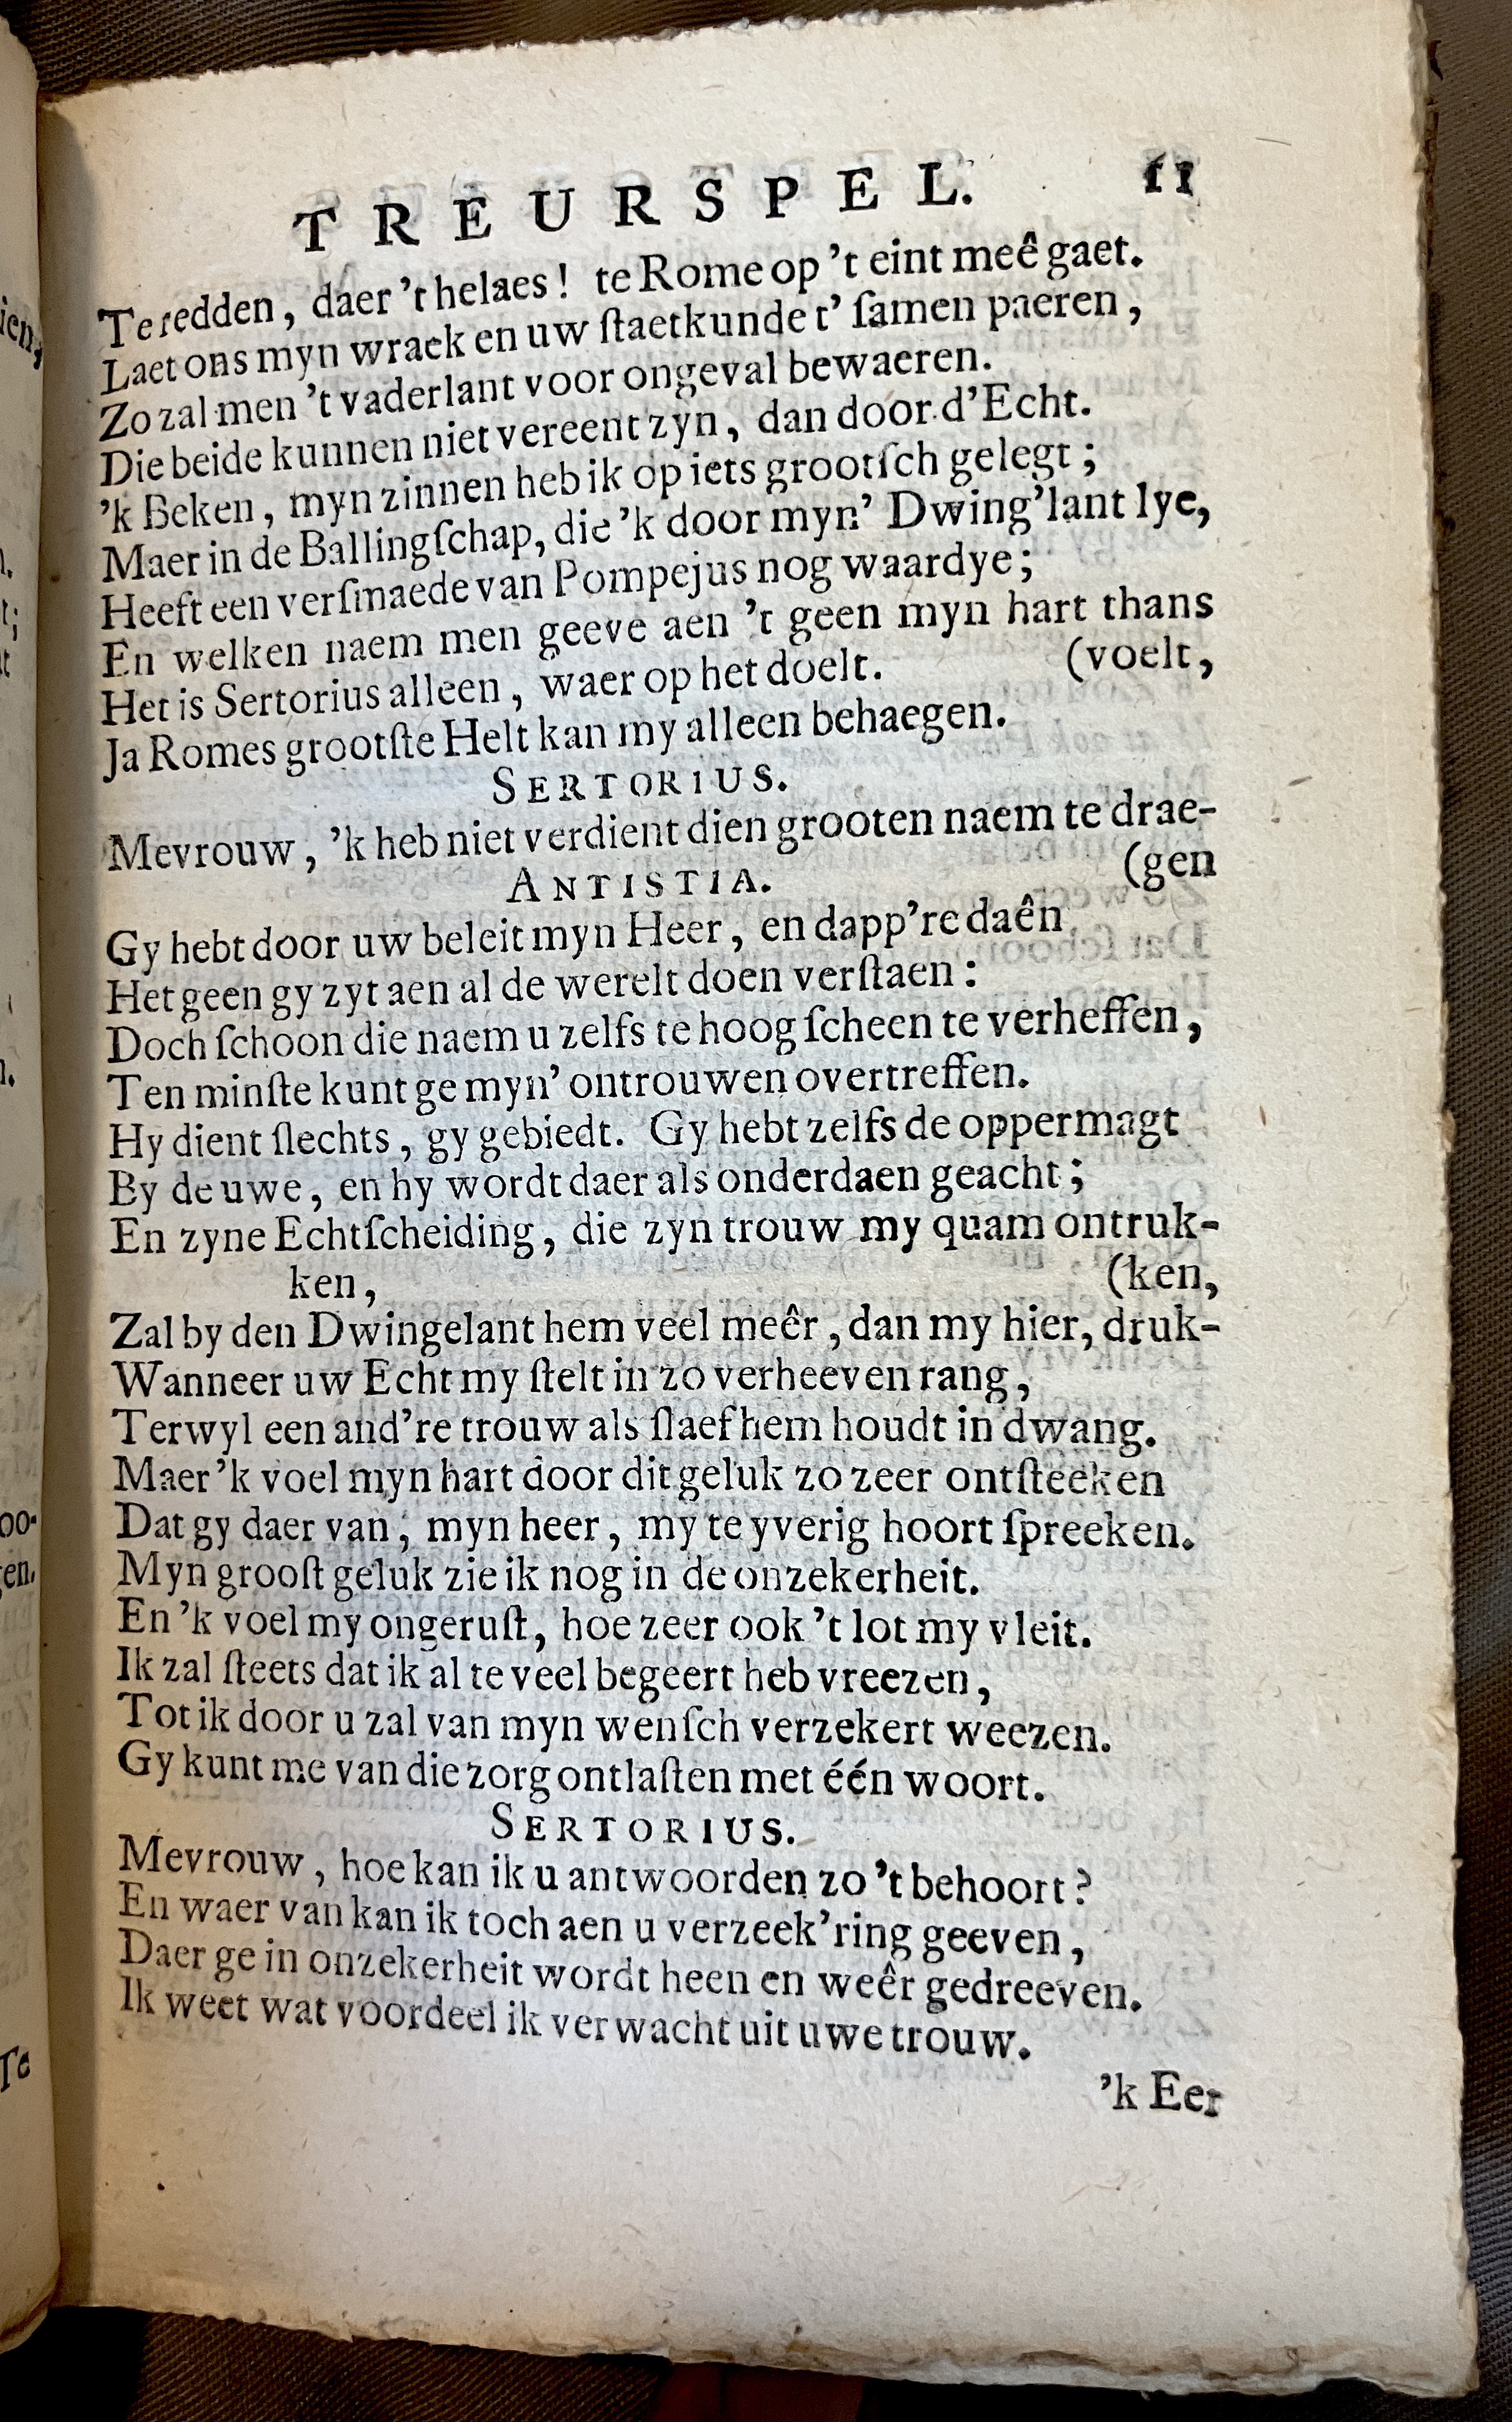 TREURSPEL. 51
Te redden, daer 't helaes! te Rome op 't eint meê gaet.
Laet ons myn wraek en uw ſtaetkunde t' ſamen paeren,
Zo zal men 't vaderlant voor ongeval bewaeren.
Die beide kunnen niet vereent zyn, dan door d'Echt.
'k Beken, myn zinnen heb ik op iets grootſch gelegt;
Maer in de Ballingſchap, die 'k door myn' Dwing'lant lye,
Heeft een verſmaede van Pompejus nog waardye;
En welken naem men geeve aen 't geen myn hart thans
(voelt,
Het is Sertorius alleen, waer op het doelt.
Ja Romes grootſte Helt kan my alleen behaegen.
SERTORIUS.
Mevrouw, 'k heb niet verdient dien grooten naem te drae-
(gen
ANTISTIA.
Gy hebt door uw beleit myn Heer, en dapp're daên
Het geen gy zyt aen al de werelt doen verſtaen:
Doch ſchoon die naem u zelfs te hoog ſcheen te verheffen,
Ten minſte kunt ge myn' ontrouwen overtreffen.
Hy dient ſlechts, gy gebiedt. Gy hebt zelfs de oppermagt
By de uwe, en hy wordt daer als onderdaen geacht;
En zyne Echtſcheiding, die zyn trouw my quam ontruk-
ken, (ken,
Zal by den Dwingelant hem veel meêr, dan my hier, druk-
Wanneer uw Echt my ſtelt in zo verheeven rang,
Terwyl een and're trouw als ſlaef hem houdt in dwang.
Maer 'k voel myn hart door dit geluk zo zeer ontſteeken
Dat gy daer van, myn heer, my te yverig hoort ſpreeken.
Myn grooſt geluk zie ik nog in de onzekerheit.
En 'k voel my ongeruſt, hoe zeer ook 't lot my vleit.
Ik zal ſteets dat ik al te veel begeert heb vreezen,
Tot ik door u zal van myn wenſch verzekert weezen.
Gy kunt me van die zorg ontlaſten met één woort.
SERTORIUS.
Mevrouw, hoe kan ik u antwoorden zo 't behoort?
En waer van kan ik toch aen u verzeek'ring geeven,
Daer ge in onzekerheit wordt heen en weêr gedreeven.
Ik weet wat voordeel ik verwacht uit uwe trouw.
'k Eer